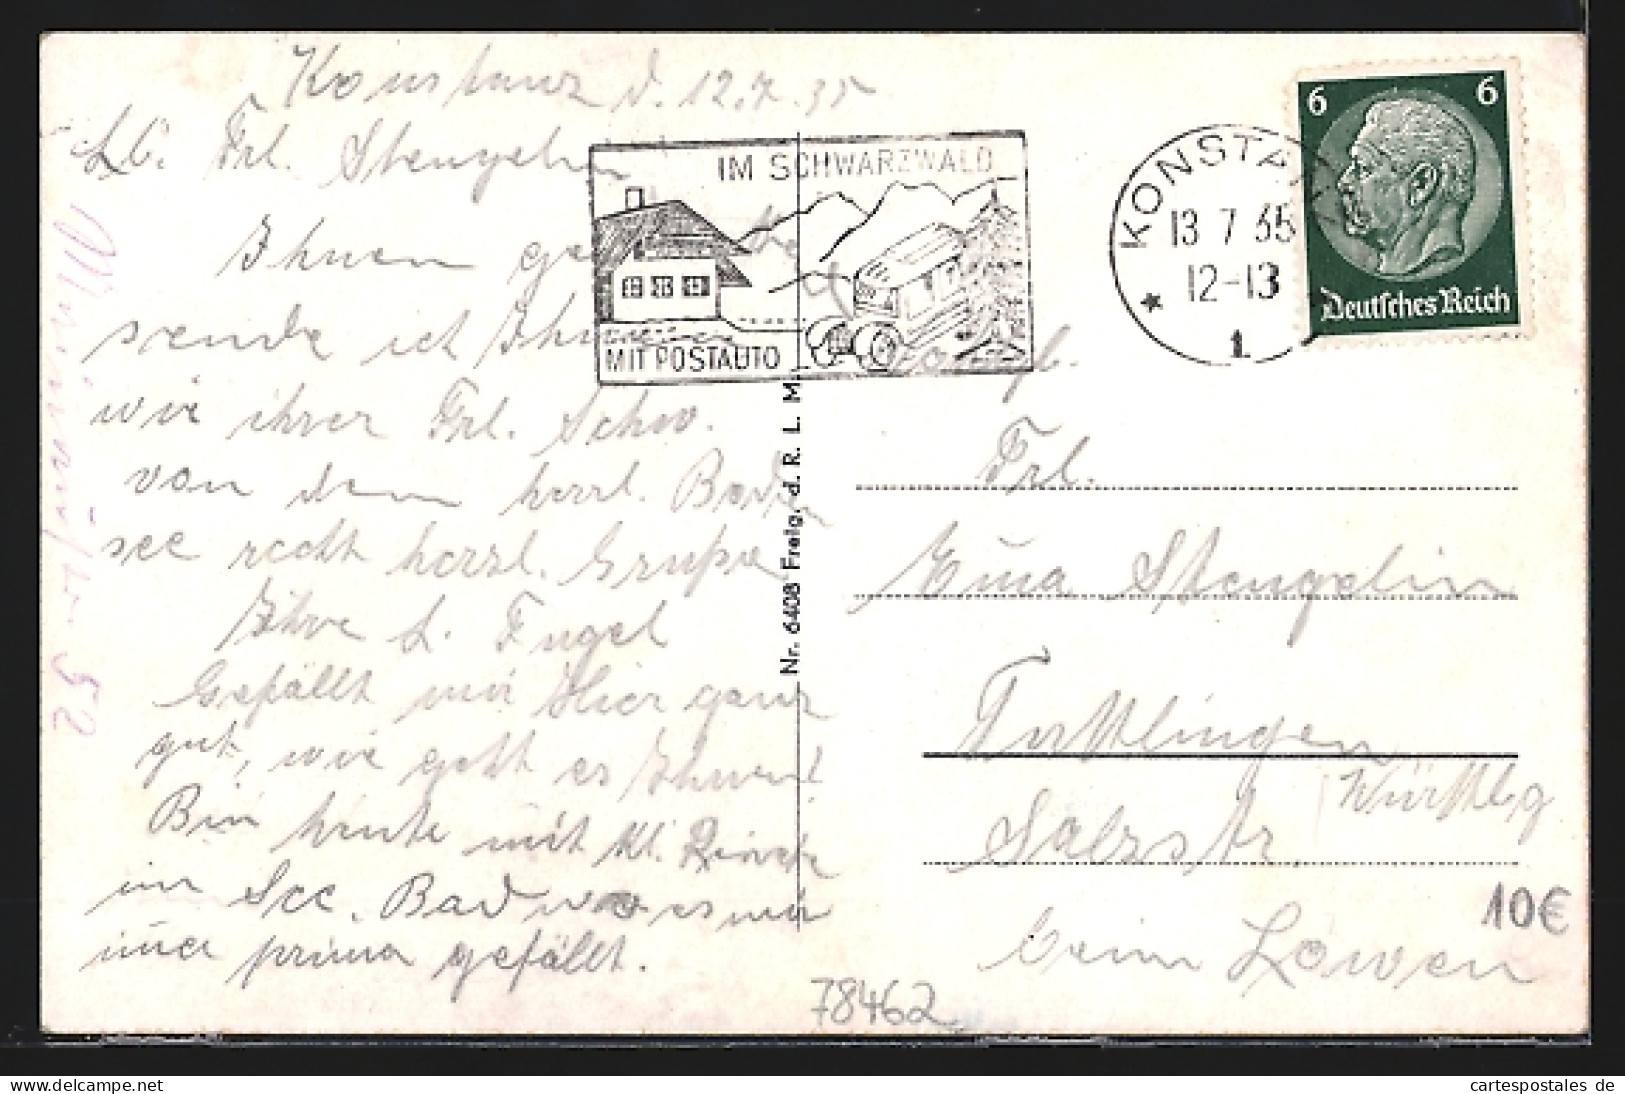 Konstanz d. 12.7.35
Lb. Frl. Stengelin
Ihnen
sende ich
wie ihrer Frl. Schw.
von dem herrl. Boden
see recht herzl. Grüße
Ihre L. Engel
Gefällt mir Hier ganz
gut, wie geht es Ihnen?
Bin heute mit kl.
im See. Bad wo es mir
imer prima gefällt.
IM SCHWARZWALD
MIT POSTAUTO
KONSTANZ
13 7 35
12-13
1
6 6
Deutsches Reich
Nr. 6408 Freig. d. R. L. M.
Frl.
Stengelin
Tuttlingen
Württbg
Salzstr.
beim Löwen
10€
78462
www.ansichtskartenversand.com
cartespostales de